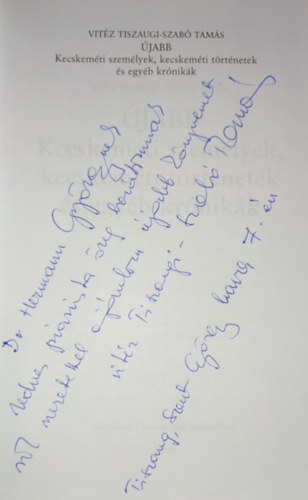 VITÉZ TISZAUGI-SZABÓ TAMÁS
ÚJABB
Kecskeméti személyek, kecskeméti történetek
és egyéb krónikák
Dr Hermann Györgynek
kedves piarista öreg barátomnak
sok szeretettel ajánlom újabb könyvemet
vitéz Tiszaugi-Szabó Tamás
Tiszaug, Szent György hava 7.-én
ÚJABB
Kecskeméti személyek,
kecskeméti történetek
és egyéb krónikák